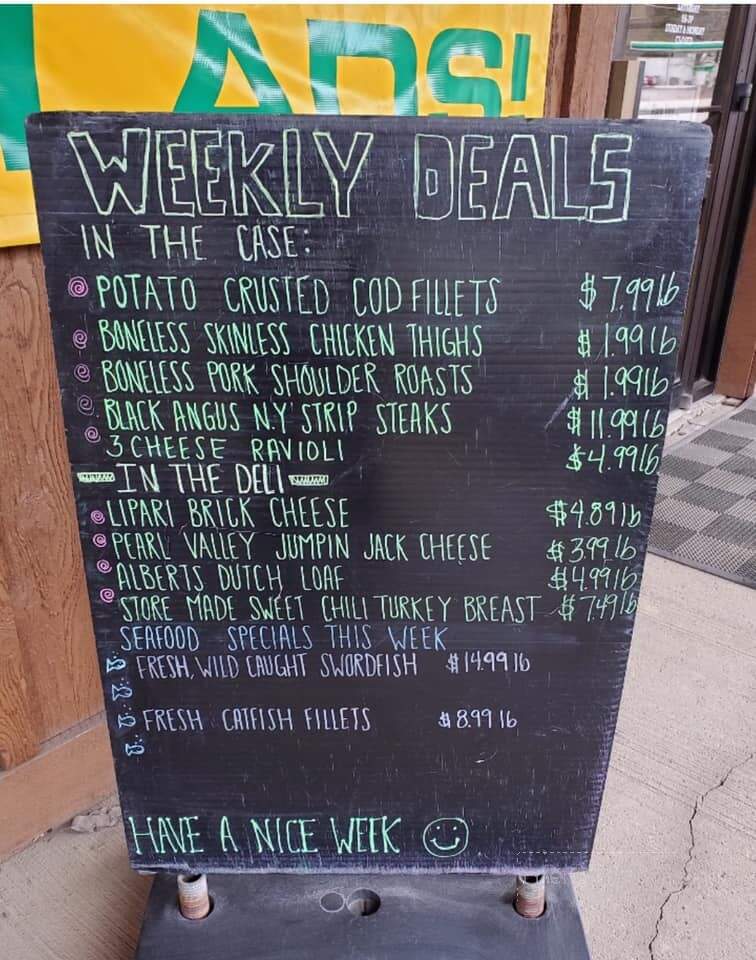 ADS!
WEEKLY DEALS
IN THE CASE:
POTATO CRUSTED COD FILLETS $7.99 lb
BONELESS SKINLESS CHICKEN THIGHS $1.99 lb
BONELESS PORK SHOULDER ROASTS $1.99 lb
BLACK ANGUS N.Y STRIP STEAKS $11.99 lb
3 CHEESE RAVIOLI $4.99 lb
IN THE DELI
LIPARI BRICK CHEESE $4.89 lb
PEARL VALLEY JUMPIN JACK CHEESE $3.99 lb
ALBERTS DUTCH LOAF $4.99 lb
STORE MADE SWEET CHILI TURKEY BREAST $7.49 lb
SEAFOOD SPECIALS THIS WEEK
FRESH, WILD CAUGHT SWORDFISH $14.99 lb
FRESH CATFISH FILLETS $8.99 lb
HAVE A NICE WEEK